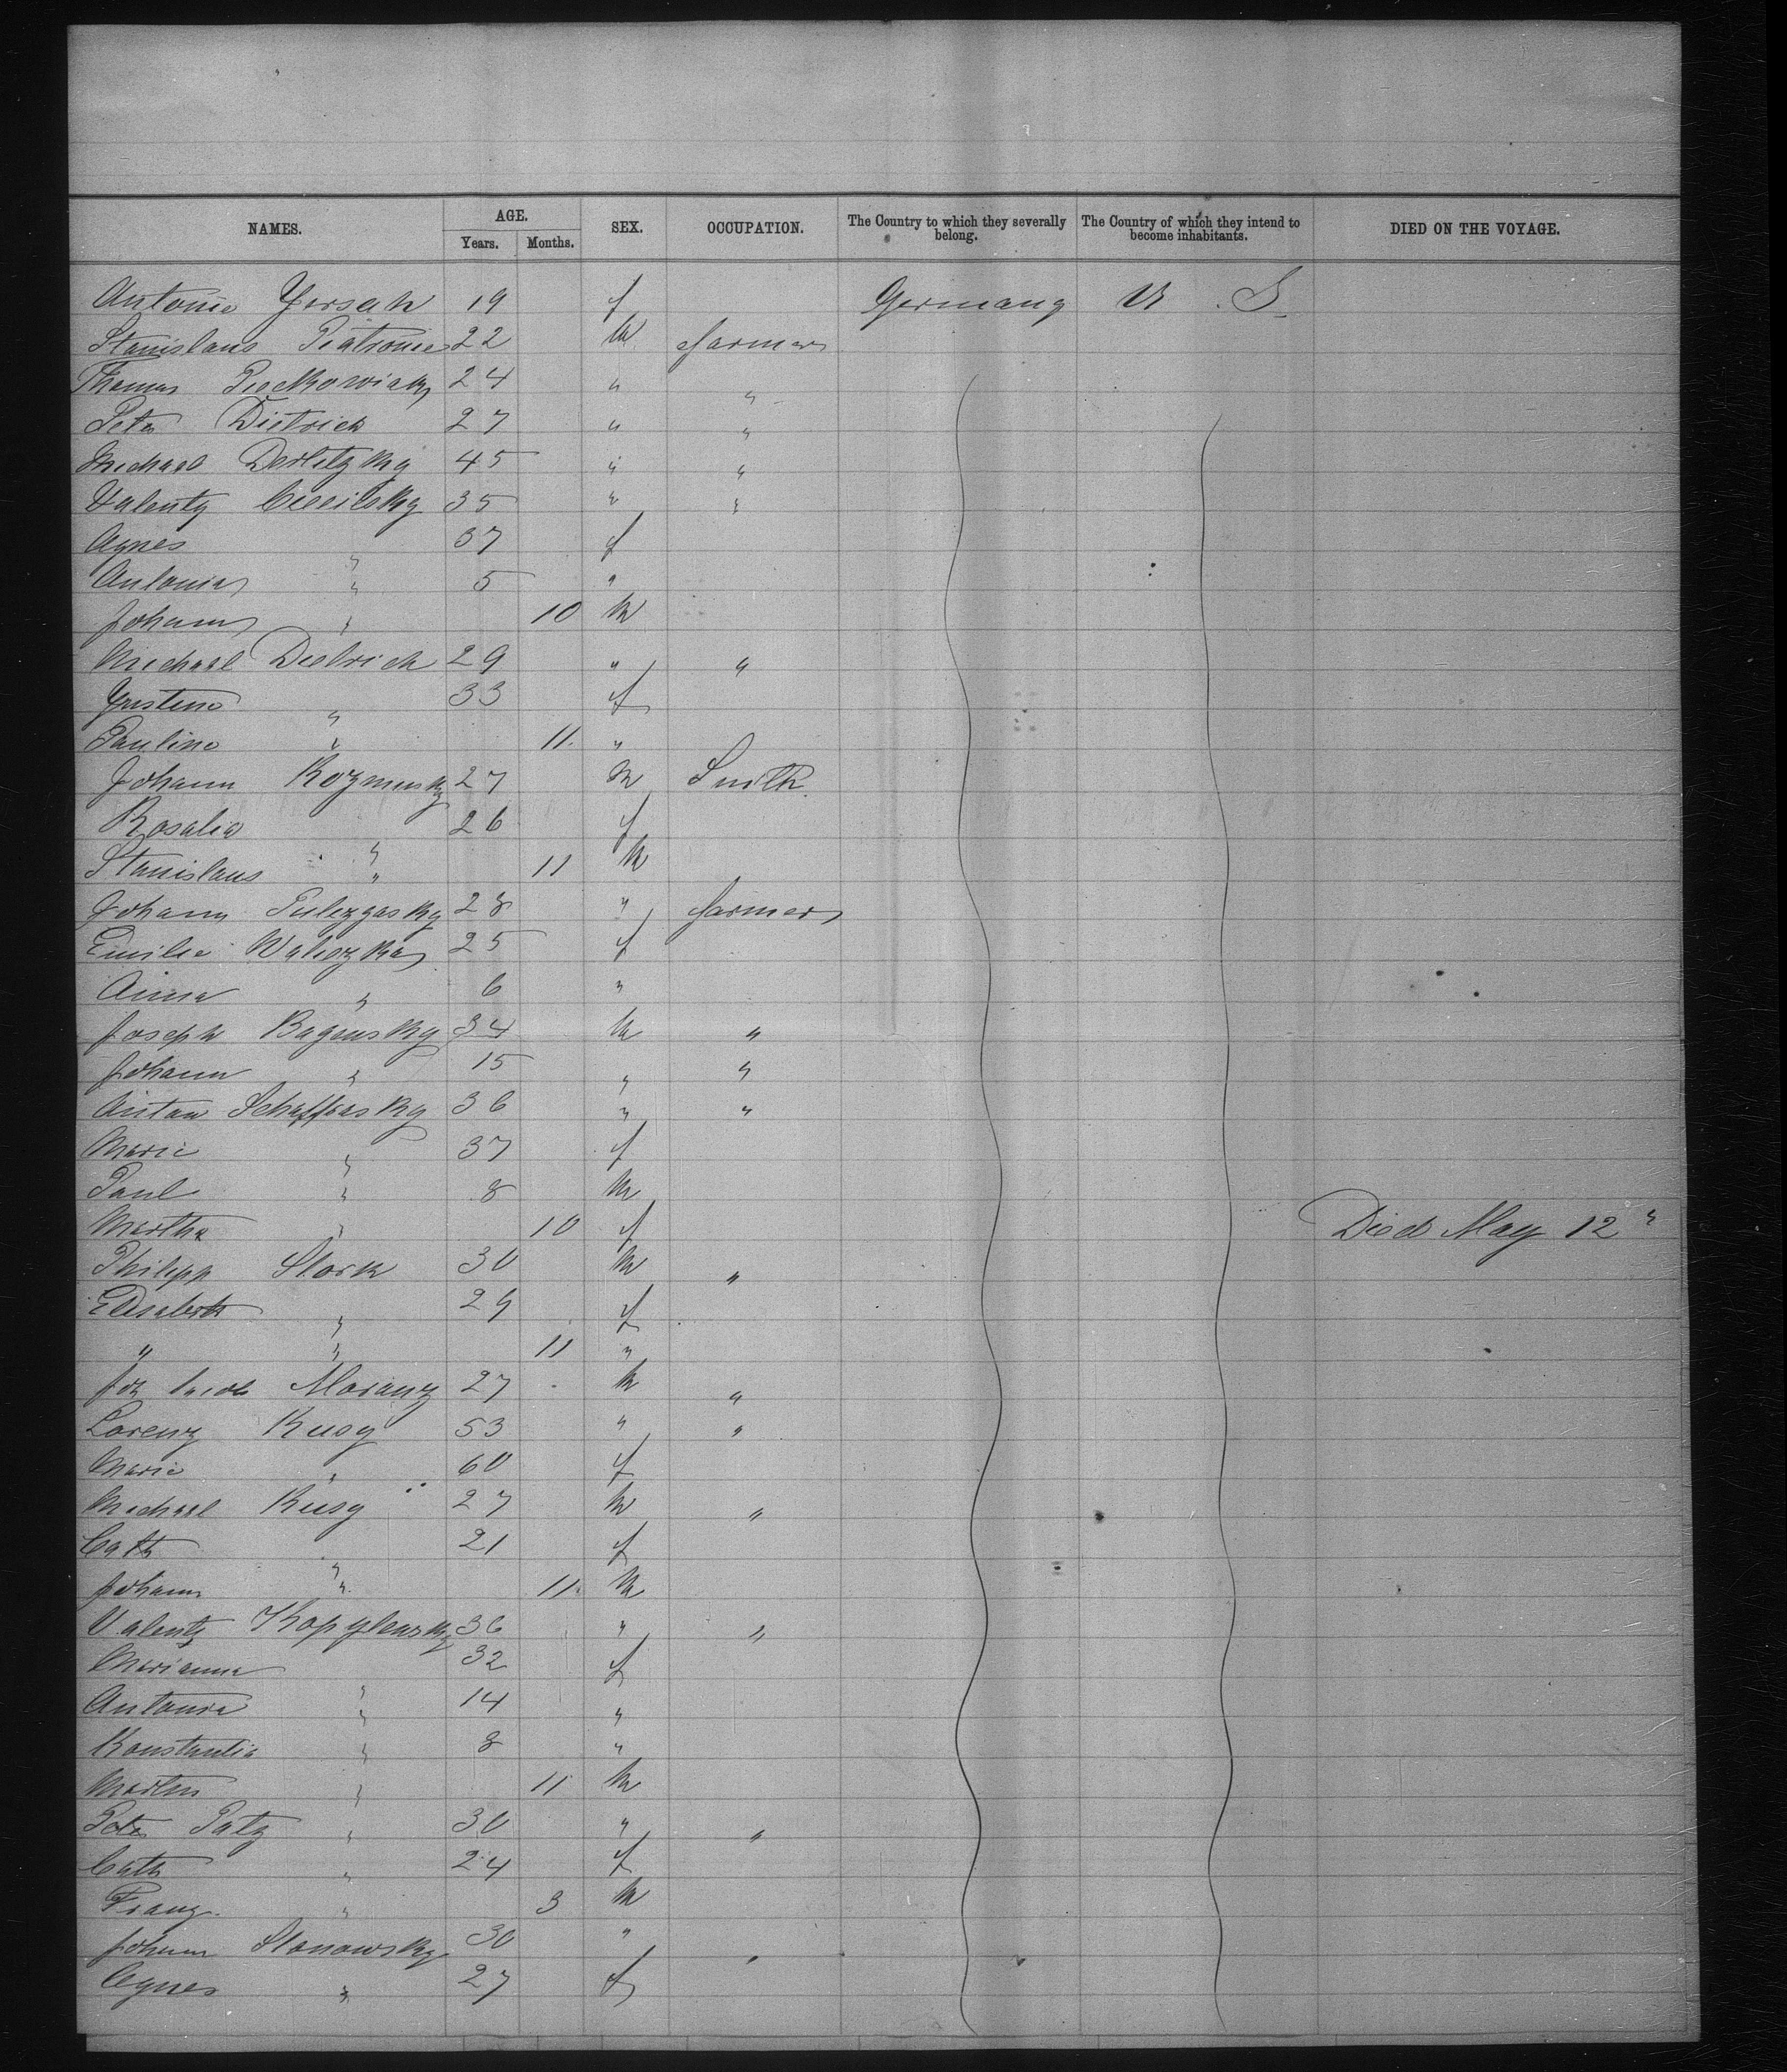 NAMES. AGE. SEX. OCCUPATION. The Country to which they severally belong. The Country of which they intend to become inhabitants. DIED ON THE VOYAGE.
Years. Months.
Antonie 19 f Germany U. S.
Stanislaus 22 m farmer
Thomas 24 " "
Peter Dietrich 27 " "
Michael Derlitzky 45 " "
Valenty 35 " "
Agnes " 37 f
Antonia " 5 "
Johann " 10 m
Michael Dietrich 29 " "
Justine " 33 f
Pauline " 11 "
Johann Kozminsky 27 m Smith
Rosalia " 26 f
Stanislaus " 11 m
Johann 28 " farmer
Emilie 25 f
Anna " 6 "
Joseph Bagensky 34 m "
Johann " 15 " "
Anton Schaffrasky 36 " "
Marie " 37 f
Paul " 8 m
Martha " 10 f Died May 12"
Philipp Stork 30 m "
Elisabeth " 29 f
" " 11 "
Joh Jacob Moranz 27 m "
Lorenz Kusy 53 " "
Marie " 60 f
Michael Kusy 27 m "
Cath " 21 f
Johann " 11 m
Valenty 36 " "
Marianna " 32 f
Antonia " 14 "
Konstantia " 8 "
Martin " 11 m
Peter Patz " 30 " "
Cath " 24 f
Franz " 3 m
Johann Slonowsky 30 " "
Agnes " 27 f